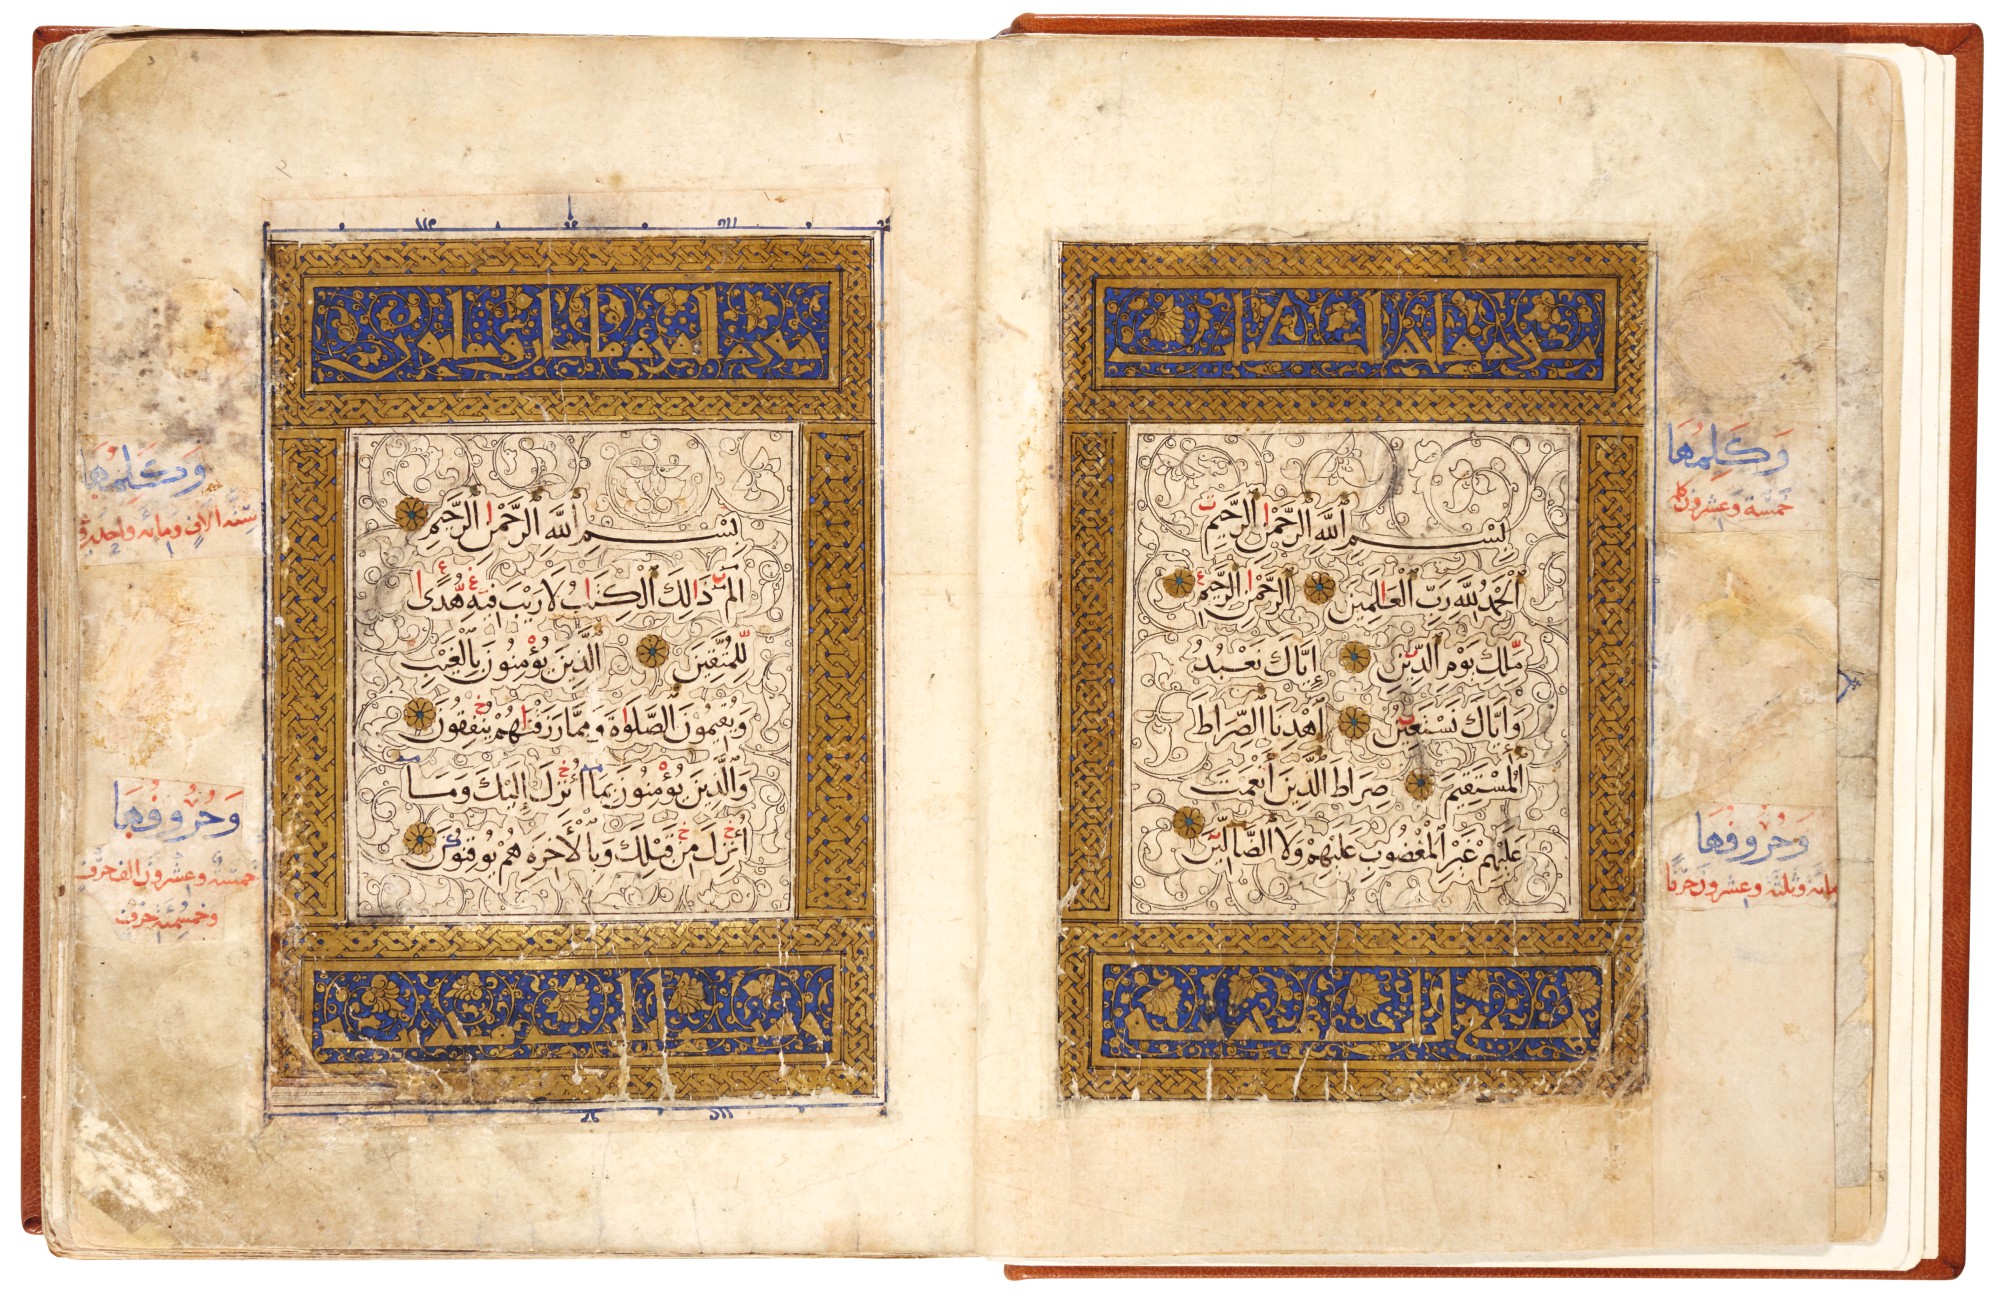 سورة فاتحة الكتاب
بِسْمِ ٱللَّهِ ٱلرَّحْمٰنِ ٱلرَّحِيمِ
ٱلْحَمْدُ لِلَّهِ رَبِّ ٱلْعَالَمِينَ ٱلرَّحْمٰنِ ٱلرَّحِيمِ
مَالِكِ يَوْمِ ٱلدِّينِ إِيَّاكَ نَعْبُدُ
وَإِيَّاكَ نَسْتَعِينُ ٱهْدِنَا ٱلصِّرَاطَ
ٱلْمُسْتَقِيمَ صِرَاطَ ٱلَّذِينَ أَنْعَمْتَ
عَلَيْهِمْ غَيْرِ ٱلْمَغْضُوبِ عَلَيْهِمْ وَلَا ٱلضَّالِّينَ
وَكَلِمُهَا
خمسة وعشرون
وَحُرُوفُهَا
مائة وثلثة وعشرون حرفا
سورة البقرة مائتان وثمانون
بِسْمِ ٱللَّهِ ٱلرَّحْمٰنِ ٱلرَّحِيمِ
الٓمٓ ذَالِكَ ٱلْكِتَابُ لَا رَيْبَ فِيهِ هُدًى
لِلْمُتَّقِينَ ٱلَّذِينَ يُؤْمِنُونَ بِٱلْغَيْبِ
وَيُقِيمُونَ ٱلصَّلَوٰةَ وَمِمَّا رَزَقْنَاهُمْ يُنْفِقُونَ
وَٱلَّذِينَ يُؤْمِنُونَ بِمَا أُنْزِلَ إِلَيْكَ وَمَا
أُنْزِلَ مِنْ قَبْلِكَ وَبِٱلْأَخِرَةِ هُمْ يُوقِنُونَ
وَكَلِمُهَا
ستة الاف ومائة واحد
وَحُرُوفُهَا
خمسة وعشرون الف حرف
وخمسمئة حرف